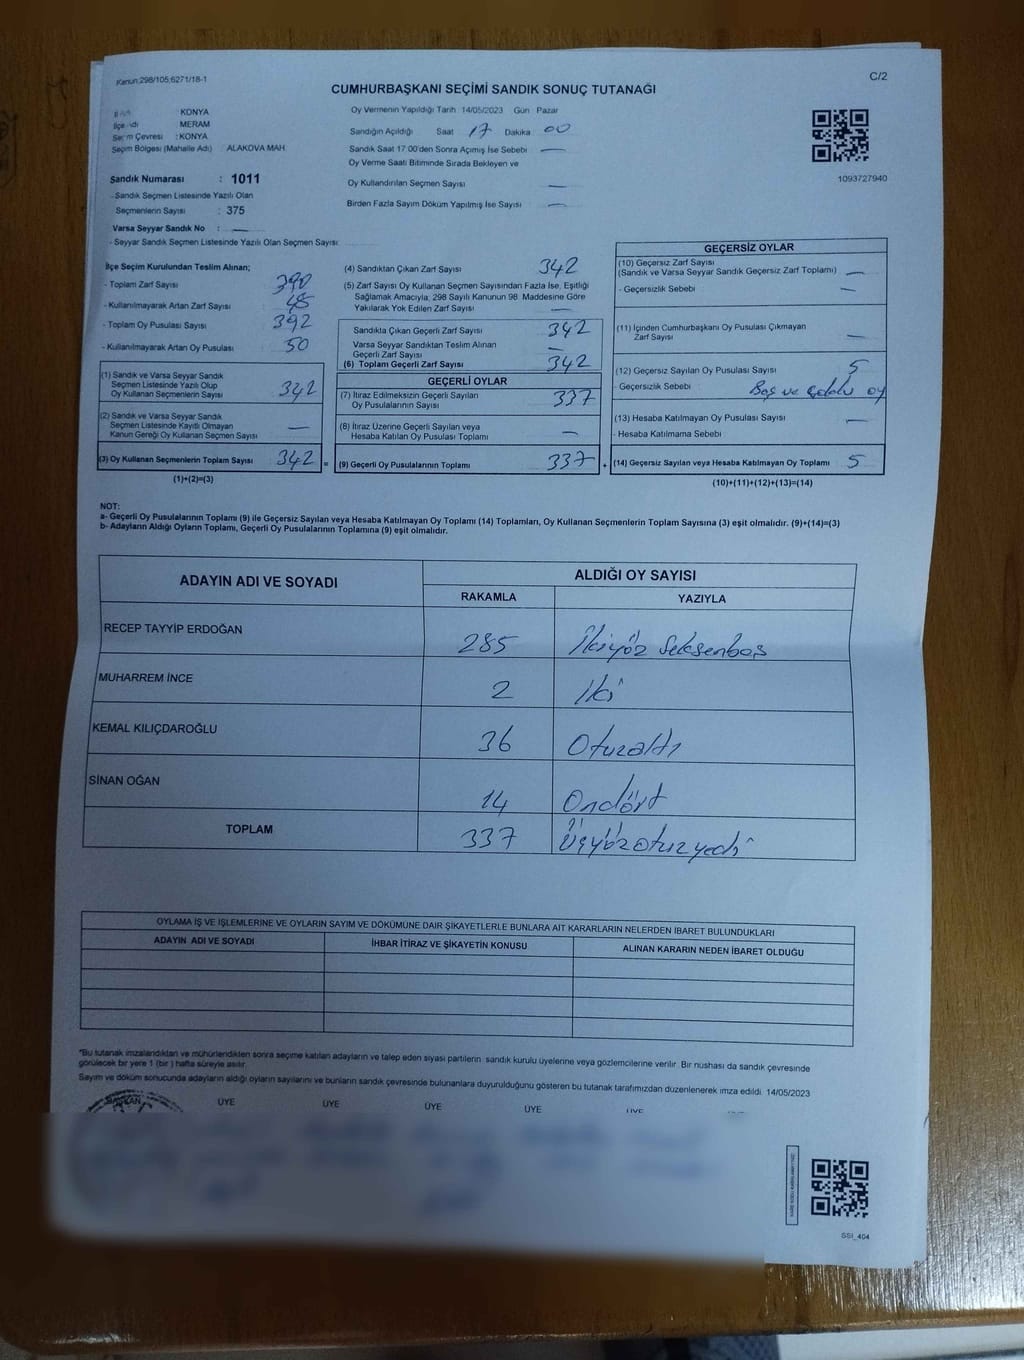 Kanun:298/105;6271/18-1
C/2
CUMHURBAŞKANI SEÇİMİ SANDIK SONUÇ TUTANAĞI
İl Adı : KONYA
İlçe Adı : MERAM
Seçim Çevresi : KONYA
Seçim Bölgesi (Mahalle Adı) : ALAKOVA MAH.
Sandık Numarası : 1011
- Sandık Seçmen Listesinde Yazılı Olan
Seçmenlerin Sayısı : 375
Varsa Seyyar Sandık No : —
- Seyyar Sandık Seçmen Listesinde Yazılı Olan Seçmen Sayısı:
Oy Vermenin Yapıldığı Tarih 14/05/2023 Gün Pazar
Sandığın Açıldığı Saat 17 Dakika 00
Sandık Saat 17:00'den Sonra Açımış İse Sebebi —
Oy Verme Saati Bitiminde Sırada Bekleyen ve
Oy Kullandırılan Seçmen Sayısı —
Birden Fazla Sayım Döküm Yapılmış İse Sayısı —
1093727940
İlçe Seçim Kurulundan Teslim Alınan;
- Toplam Zarf Sayısı 390
- Kullanılmayarak Artan Zarf Sayısı 48
- Toplam Oy Pusulası Sayısı 392
- Kullanılmayarak Artan Oy Pusulası 50
(1) Sandık ve Varsa Seyyar Sandık
Seçmen Listesinde Yazılı Olup
Oy Kullanan Seçmenlerin Sayısı 342
(2) Sandık ve Varsa Seyyar Sandık
Seçmen Listesinde Kayıtlı Olmayan
Kanun Gereği Oy Kullanan Seçmen Sayısı —
(3) Oy Kullanan Seçmenlerin Toplam Sayısı 342 =
(1)+(2)=(3)
(4) Sandıktan Çıkan Zarf Sayısı 342
(5) Zarf Sayısı Oy Kullanan Seçmen Sayısından Fazla İse, Eşitliği
Sağlamak Amacıyla; 298 Sayılı Kanunun 98. Maddesine Göre
Yakılarak Yok Edilen Zarf Sayısı —
Sandıkta Çıkan Geçerli Zarf Sayısı 342
Varsa Seyyar Sandıktan Teslim Alınan
Geçerli Zarf Sayısı —
(6) Toplam Geçerli Zarf Sayısı 342
GEÇERLİ OYLAR
(7) İtiraz Edilmeksizin Geçerli Sayılan
Oy Pusulalarının Sayısı 337
(8) İtiraz Üzerine Geçerli Sayılan veya
Hesaba Katılan Oy Pusulası Toplamı —
(9) Geçerli Oy Pusulalarının Toplamı 337 +
GEÇERSİZ OYLAR
(10) Geçersiz Zarf Sayısı
(Sandık ve Varsa Seyyar Sandık Geçersiz Zarf Toplamı) —
- Geçersizlik Sebebi —
(11) İçinden Cumhurbaşkanı Oy Pusulası Çıkmayan
Zarf Sayısı —
(12) Geçersiz Sayılan Oy Pusulası Sayısı 5
- Geçersizlik Sebebi Boş ve oy
(13) Hesaba Katılmayan Oy Pusulası Sayısı —
- Hesaba Katılmama Sebebi
(14) Geçersiz Sayılan veya Hesaba Katılmayan Oy Toplamı 5
(10)+(11)+(12)+(13)=(14)
NOT:
a- Geçerli Oy Pusulalarının Toplamı (9) ile Geçersiz Sayılan veya Hesaba Katılmayan Oy Toplamı (14) Toplamları, Oy Kullanan Seçmenlerin Toplam Sayısına (3) eşit olmalıdır. (9)+(14)=(3)
b- Adayların Aldığı Oyların Toplamı, Geçerli Oy Pusulalarının Toplamına (9) eşit olmalıdır.
ADAYIN ADI VE SOYADI
ALDIĞI OY SAYISI
RAKAMLA YAZIYLA
RECEP TAYYİP ERDOĞAN 285 İkiyöz Seksenbeş
MUHARREM İNCE 2 İki
KEMAL KILIÇDAROĞLU 36 Otuzaltı
SİNAN OĞAN 14 Ondört
TOPLAM 337 Üçyözotuzyedi
OYLAMA İŞ VE İŞLEMLERİNE VE OYLARIN SAYIM VE DÖKÜMÜNE DAİR ŞİKAYETLERLE BUNLARA AİT KARARLARIN NELERDEN İBARET BULUNDUKLARI
ADAYIN ADI VE SOYADI İHBAR İTİRAZ VE ŞİKAYETİN KONUSU ALINAN KARARIN NEDEN İBARET OLDUĞU
*Bu tutanak imzalandıktan ve mühürlendikten sonra seçime katılan adayların ve talep eden siyasi partilerin sandık kurulu üyelerine veya gözlemcilerine verilir. Bir nüshası da sandık çevresinde
görülecek bir yere 1 (bir) hafta süreyle asılır.
Sayım ve döküm sonucunda adayların aldığı oyların sayılarını ve bunların sandık çevresinde bulunanlara duyurulduğunu gösteren bu tutanak tarafımızdan düzenlenerek imza edildi. 14/05/2023
BAŞKAN ÜYE ÜYE ÜYE ÜYE ÜYE
SSI_404